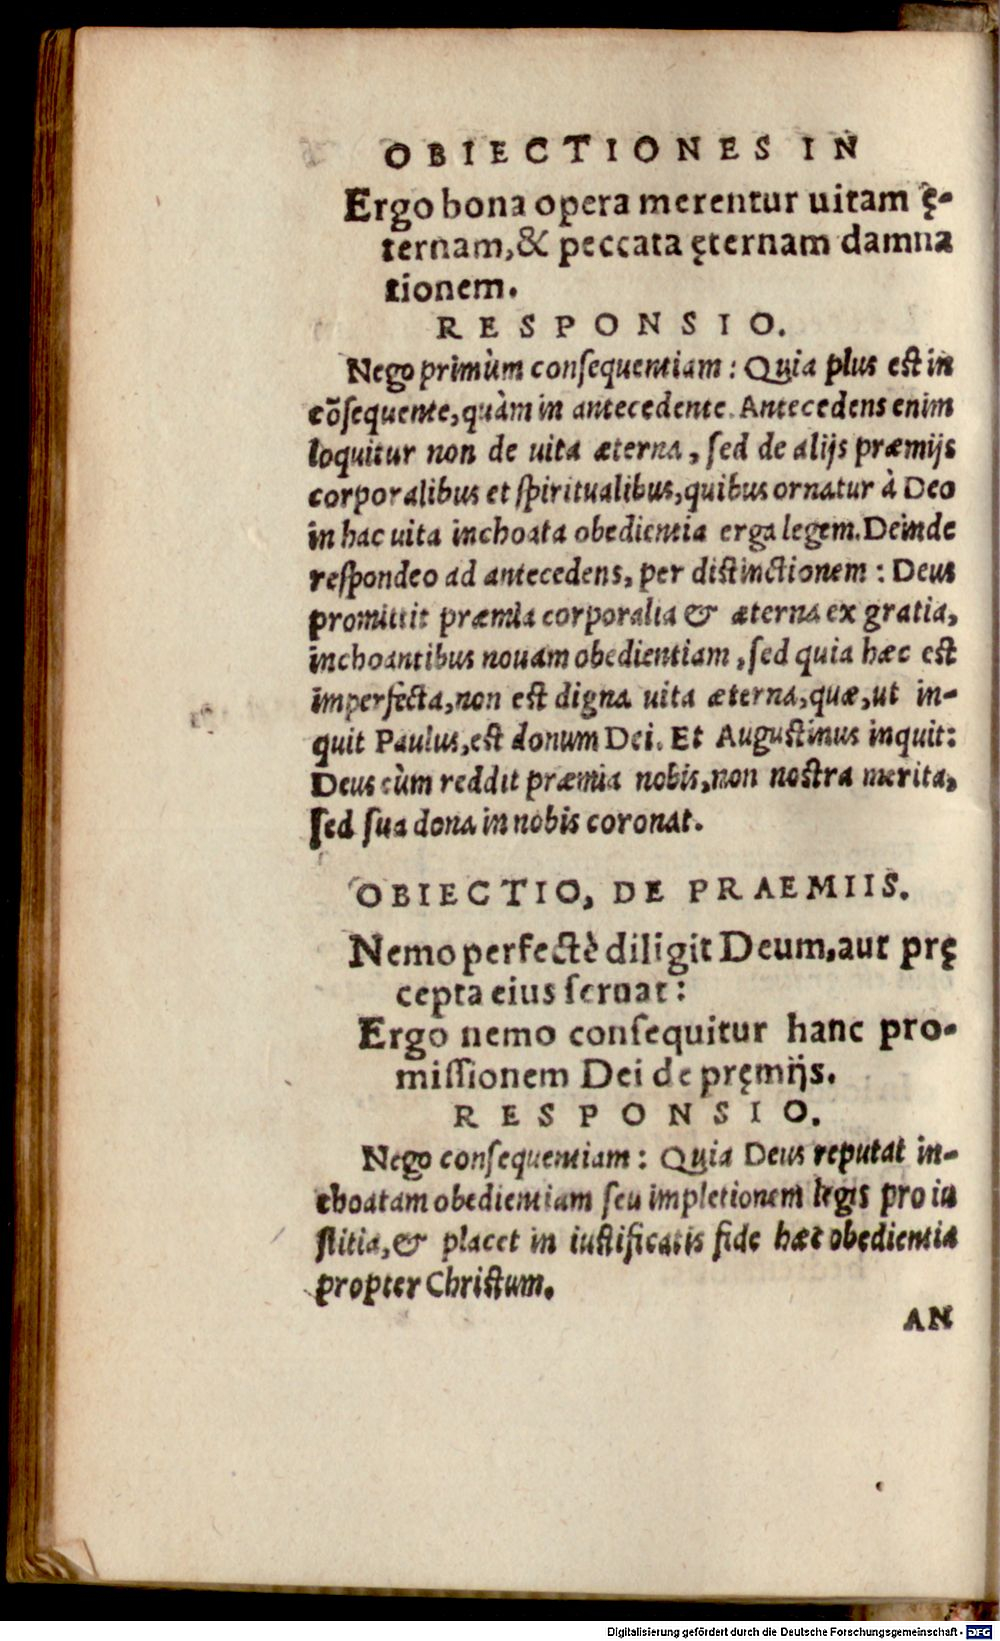 OBIECTIONES IN
Ergo bona opera merentur uitam ę-
ternam,& peccata ęternam damna
tionem.
RESPONSIO.
Nego primùm consequentiam: Quia plus est in
cõsequente,quàm in antecedente. Antecedens enim
loquitur non de uita æterna, sed de alijs præmijs
corporalibus et spiritualibus,quibus ornatur à Deo
in hac uita inchoata obedientia erga legem. Deinde
respondeo ad antecedens, per distinctionem: Deus
promittit præmia corporalia & æterna ex gratia,
inchoantibus nouam obedientiam, sed quia hæc est
imperfecta,non est digna uita æterna,quæ,ut in-
quit Paulus,est donum Dei. Et Augustinus inquit:
Deus cùm reddit præmia nobis,non nostra merita,
sed sua dona in nobis coronat.
OBIECTIO, DE PRAEMIIS.
Nemo perfectè diligit Deum,aut prę
cepta eius seruat:
Ergo nemo consequitur hanc pro-
missionem Dei de pręmijs.
RESPONSIO.
Nego consequentiam: Quia Deus reputat in-
choatam obedientiam seu impletionem legis pro iu
stitia,& placet in iustificatis fide hæc obedientia
propter Christum.
AN
Digitalisierung gefördert durch die Deutsche Forschungsgemeinschaft - DFG